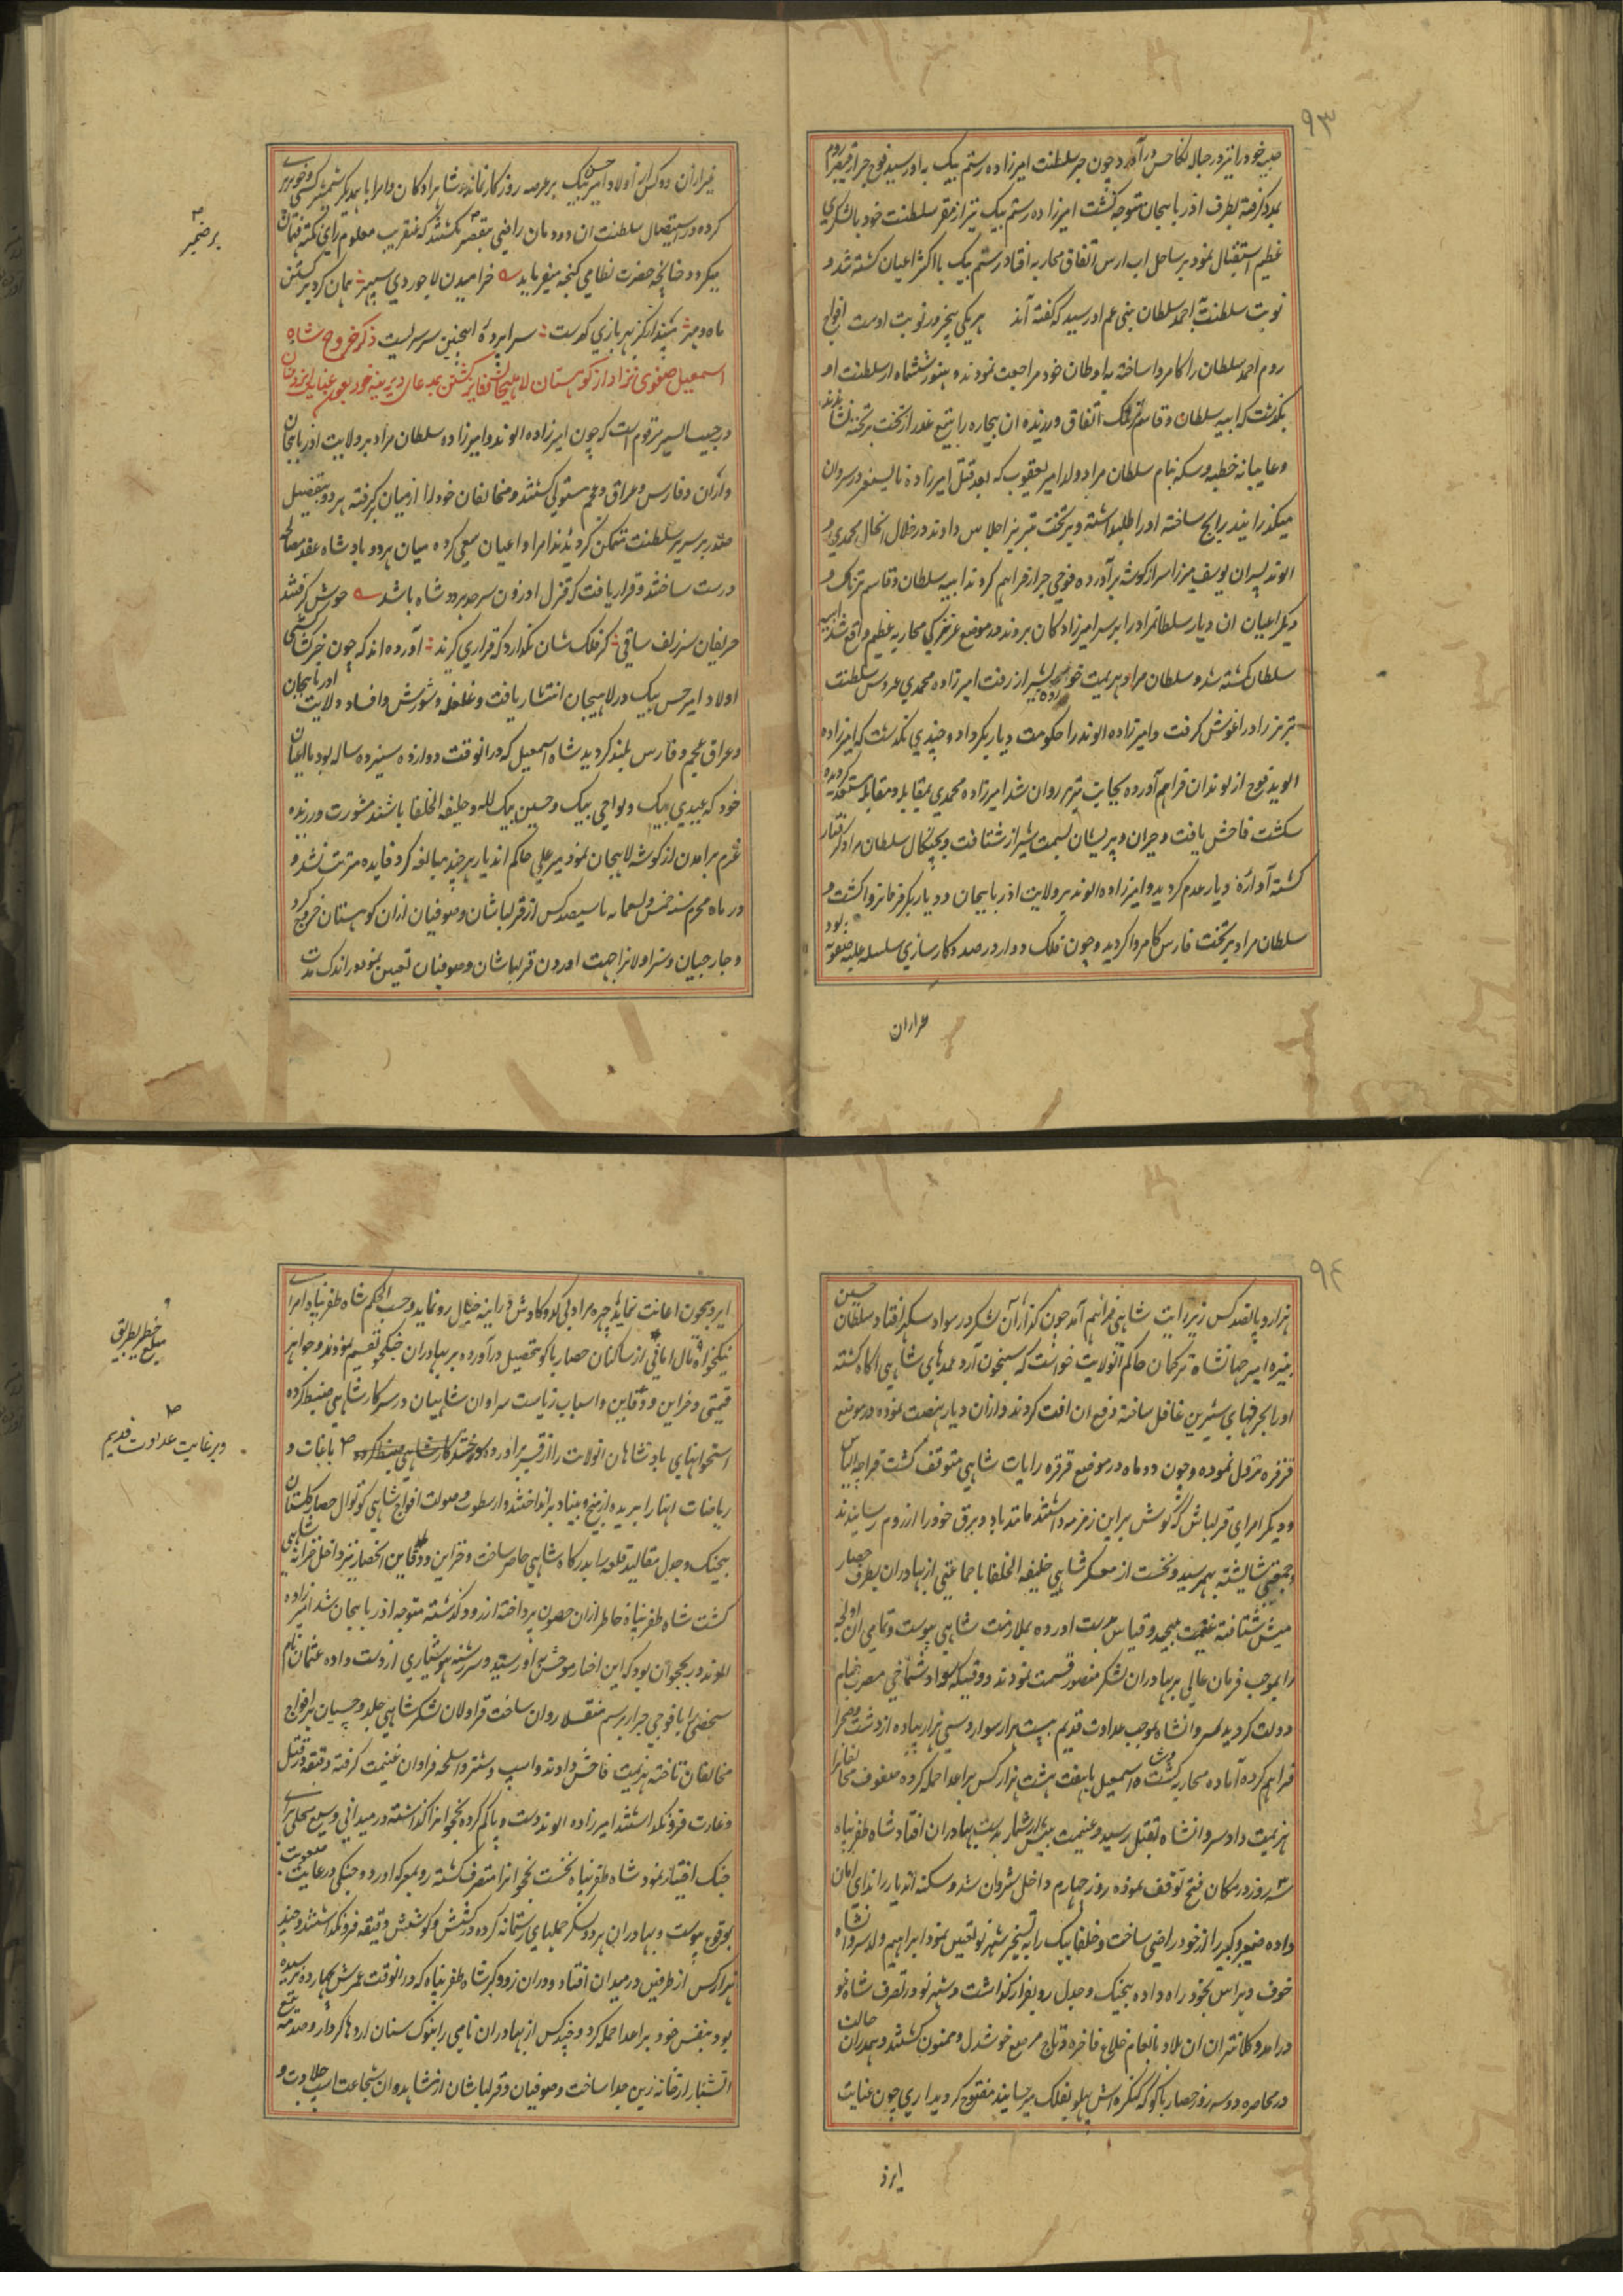 ۹۳
حبیب خود را نیز در حباله نکاحش درآورد چون خبر سلطنت امیرزاده رستم بیک به او رسید فوج جرار از قیصر روم
بمدد گرفته بطرف اذربایجان متوجه گشت امیرزاده رستم بیک نیز از مقر سلطنت خود بالشکری
عظیم استقبال نمود بر ساحل اب ارس اتفاق محاربه افتاد رستم بیک با اکثر اعیان کشته شد و
نوبت سلطنت باحمد سلطان بنی عم او رسید که گفته اند هر یکی پنجروز نوبت اوست افواج
روم احمد سلطان را کامروا ساخته باوطان خود مراجعت نمودند و هنوز ششماه از سلطنت او
نگذشت که ابیه سلطان و قاسم ترنک اتفاق ورزیده ان بیچاره را بتیغ غدر از تخت بر تخته نشاندند
و غایبانه خطبه و سکه بنام سلطان مراد ولد امیر یعقوب که بعد قتل امیرزاده بایسنغر در شروان
میگذرانیند رایج ساخته او را طلبداشته و بر تخت تبریز اجلاس دادند در خلال انحال محمدی و
الوند پسران یوسف میرزا سر از گوشه برآورده فوجی جرار فراهم کردند ابیه سلطان و قاسم ترنک و
دیگر اعیان ان دیار سلطانمراد را بر سر امیرزادگان بردند در موضع عزیز کی محاربه عظیم واقع شد ابیه
سلطان کشته شد و سلطان مراد هزیمت خورده بشیراز رفت امیرزاده محمدی عروس سلطنت
تبریز را در اغوش گرفت و امیرزاده الوند را حکومت دیاربکر داد و چندی نگذشت که امیرزاده
الوند فوج از لوندان فراهم آورده بجانب تبریز روان شد امیرزاده محمدی بمقابله و مقاتله مستعد گردیده
شکست فاحش یافت و حیران و پریشان بسمت شیراز شتافت و بچنگال سلطان مراد گرفتار
گشته آوارۀ دیار عدم گردید و امیرزاده الوند بر ولایت اذربایجان و دیاربکر فرمانروا گشت و
سلطان مراد بر تخت فارس کامروا گردید و چون فلک دوار در صدد کارسازی سلسله علیه صفویه بود
غیر از ان
غیر از ان دو کس از اولاد امیر حسن بیک بر عرصه روزگار نماند شاهزادگان و امرا با یکدیگر شمشیر کشی و خونریزی
کرده در استیصال سلطنت ان دودمان راضی بقصر نگشتند که عنقریب معلوم رای نکته فهمان
میگردد چنانچه حضرت نظامی گنجه میفرماید خرامیدن لاجوردی سپهر همان گرد برگشتن
ماه و مهر مپندار کز بهر بازی گریست سراپردۀ اینچنین سرسریست ذکر خروج شاه
اسمعیل صفوی نژاد از کوهستان لاهیجان
در حبیب السیر مرقوم است که چون امیرزاده الوند و امیرزاده سلطان مراد بر ولایت اذربایجان
و اران و فارس و عراق و عجم مستولی گشتند و مخالفان خود را از میان برگرفته هر دو بتفضیل
مقدر بر سریر سلطنت متمکن گردیدند امرا و اعیان سعی کرده میان هر دو بادشاه عقد مصالحه
درست ساختند و قرار یافت که قزل اوزون سرحد هر دو شاه باشد خوش گرفتند
حریفان سر زلف ساقی گر فلکشان بگذارد که قراری گیرند آورده اند که چون خبر سرکشی
اولاد امیر حسن بیک در لاهیجان انتشار یافت و غلغله و شورش و افساد ولایت اذربایجان
و عراق عجم و فارس بلند گردید شاه اسمعیل که در انوقت دوازده سیزده ساله بود با اعیان
خود که عبیدی بیک و لواجی بیک و حسین بیک لله و خلیفه الخلفا باشند مشورت ورزیده
عزم برامدن از گوشه لاهیجان نمود میر علی حاکم اندیار هر چند مبالغه کرد فایده مترتب نشد و
در ماه محرم سنه خمس و تسعمایه با سیصد کس از قزلباشان و صوفیان ازان کوهستان خروج کرد
و جارچیان و سزاولان را بجهت اوردن قزلباشان و صوفیان تعین نمود در اندک مدت
بر ضمیر
۹۴
هزار و پانصد کس زیر رایت شاهی فراهم آمد چون گذار آن لشکر در سواد سکهر افتاد سلطان حسین
نبیره امیر جهانشاه ترکمان حاکم انولایت خواست که شبخون آرد عمدهای شاهی اگاه گشته
او را بحرفهای شیرین غافل ساخته دفع ان افت کردند و ازان دیار نهضت نموده در موضع
قزقره نزول نموده و چون دو ماه در موضع قرقره رایات شاهی متوقف گشت قراچه الیاس
و دیگر امرای قزلباش که گوش بر این زمزمه داشتند مانند باد و برق خود را از روم رسانیدند
و جمعیتی شایسته بهم رسید و نخست از معسکر شاهی خلیفه الخلفا با جماعتی از بهادران بطرف حصار
میش شتافته غنیمت بیحد و قیاس بدست اورده بملازمت شاهی پیوست و تمامی ان اولجه
را بموجب فرمان عالی بر بهادران لشکر منصور قسمت نمودند و وقتیکه سواد شماخی مضرب خیام
دولت گردید شروانشاه بموجب عداوت قدیم بیست هزار سوار و سی هزار پیاده از دشت و صحرا
فراهم کرده آماده محاربه گشت و شاه اسمعیل با هفت هشت هزار کس بر اعدا حمله کرده صفوف مخالفان را
هزیمت داد شروانشاه بقتل رسید و غنیمت بیش از شمار بدست بهادران افتاد شاه ظفرپناه
سه روز در مکان فتح توقف نموده روز چهارم داخل شروان شد و سکنه اندیار را ندای امان
داده صغیر و کبیر را از خود راضی ساخت و خلفا بیک را به تسخیر شهر نو تعین نمود ابراهیم ولد شروانشاه
خوف و هراس بخود راه داده بیجنگ و جدل رو بفرار گذاشت و شهر نو در تصرف شاه نو
درامد و کلانتران ان بلاد بانعام خلاع فاخره و تاج مرصع خوشدل و ممنون گشتند و بهمدران حالت
در محاصره دو سه روز حصار باکو که کنگره اش پهلو بفلک میرسانید مفتوح گردید اری چون عنایت
ایزد
ایزد بیچون اعانت نماید چهره مراد بی کد و کاوش در اینه خیال رو نماید و حسب الحکم شاه ظفرپناه امرای
نیکخواه مال امانی از ساکنان حصار باکو تحصیل درآورده بر بهادران جنگجو تقسیم نمودند و جواهر
قیمتی و خزاین و دفاین و اسباب ریاست سراوان شاهیان در سرکار شاهی ضبط کرده
استخوانهای بادشاهان انولایت را از قبر براورده سوختند باغات و
ریاضات انها را بریده از بیخ و بنیاد برانداختند و از سطوت و صولت افواج شاهی کوتوال حصار گلستان
بیجنگ و جدل مقالید قلعه را بدرگاه شاهی حاضر ساخت و خزاین و دفاین انحصار نیز داخل خزانه شاهی
گشت شاه ظفرپناه خاطر ازان حصون پرداخته از رود گذشته متوجه اذربایجان شد امیرزاده
الوند در نخجوان بود که این اخبار موحش باو رسید و سررشته هوشیاری از دست داده عثمان نام
شخصی را با فوجی جرار برسم منقلا روان ساخت قراولان لشکر شاهی جلد و چسپان بر افواج
مخالفان تاخته هزیمت فاحش دادند و اسپ و شتر و اسلحه فراوان غنیمت گرفته دقیقه در قتل
و غارت فرو نگذاشتند امیرزاده الوند دست و پا گم کرده نخجوان را گذاشته در میدانی وسیع محلی برای
جنگ اختیار نمود شاه ظفرپناه نخست نخجوان را متصرف گشته رو بمعرکه اورد و جنگی در غایت صعوبت
بوقوع پیوست و بهادران هر دو لشکر حملهای رستمانه کرده در کشش و کوشش دقیقه فرو نگذاشتند و چند
هزار کس از طرفین در میدان افتاد و دران زد و گیر شاه ظفرپناه که در انوقت عمرش بچهارده رسیده
بود بنفس خود بر اعدا حمله کرد و چند کس از بهادران نامی را بنوک سنان اژدها کردار و صدمه تیغ
اتشبار از خانه زین جدا ساخت و صوفیان و قزلباشان از مشاهده ان شجاعت اسپ جلادت و
و
مبلغ خطیر بطریق
و بر غایت عداوت قدیم